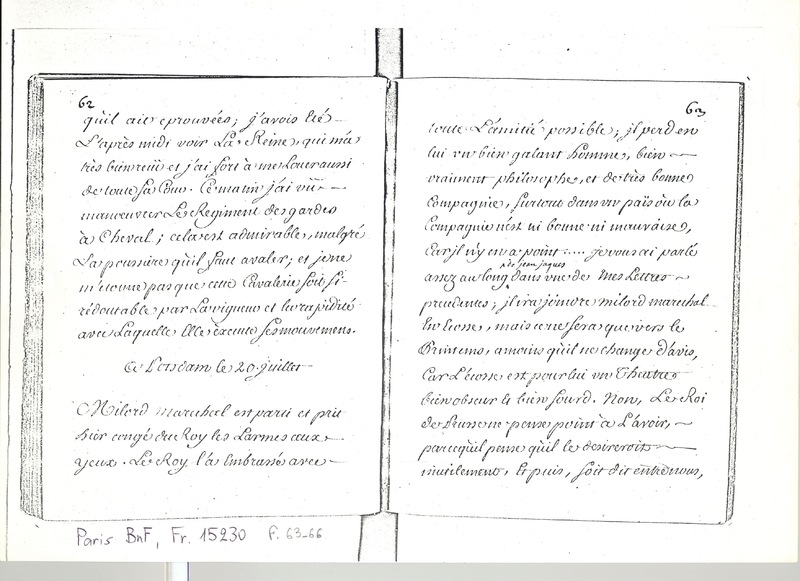 62
qu'il ait eprouvées; j'avois été
L'après midi voir La Reine, qui m'a
très bien reçu et j'ai fort à me Louer aussi
de toute sa Cour. Ce matin j'ai vû
manœuvrer Le Regiment des gardes
à Cheval; cela est admirable, malgré
La poussiere qu'il faut avaler; et je ne
m'etonne pas que cette Cavalerie soit si
rédoutable par La vigueur et la rapidité
avec Laquelle Elle éxecute ses mouvemens.
Ce Potsdam le 20. juillet
Milord marechal est parti et prit
hier congé du Roy les Larmes aux
yeux. Le Roy l'a Embrassé avec
63
toute L'amitié possible; il perd en
lui un bien galant homme, bien
vraiment philosophe, et de très bonne
Compagnie, surtout dans un païs où la
Compagnie n'est ni bonne ni mauvaise,
Car il n'y en a point ..... je vous ai parlé
de jean jaques
assez au long dans une de Mes Lettres
precedentes; il ira joindre milord marechal
En Ecosse, mais ce ne sera que vers le
Printems, amoins qu'il ne change d'avis,
Car L'écosse est pour lui un Theatre
bien obscur et bien sourd. Non, Le Roi
de Prusse ne pense point à L'avoir,
parcequ'il pense qu'il le desireroit
inutilement, Et puis, soit dit entre nous,
Paris BnF, Fr. 15230 f. 63-66